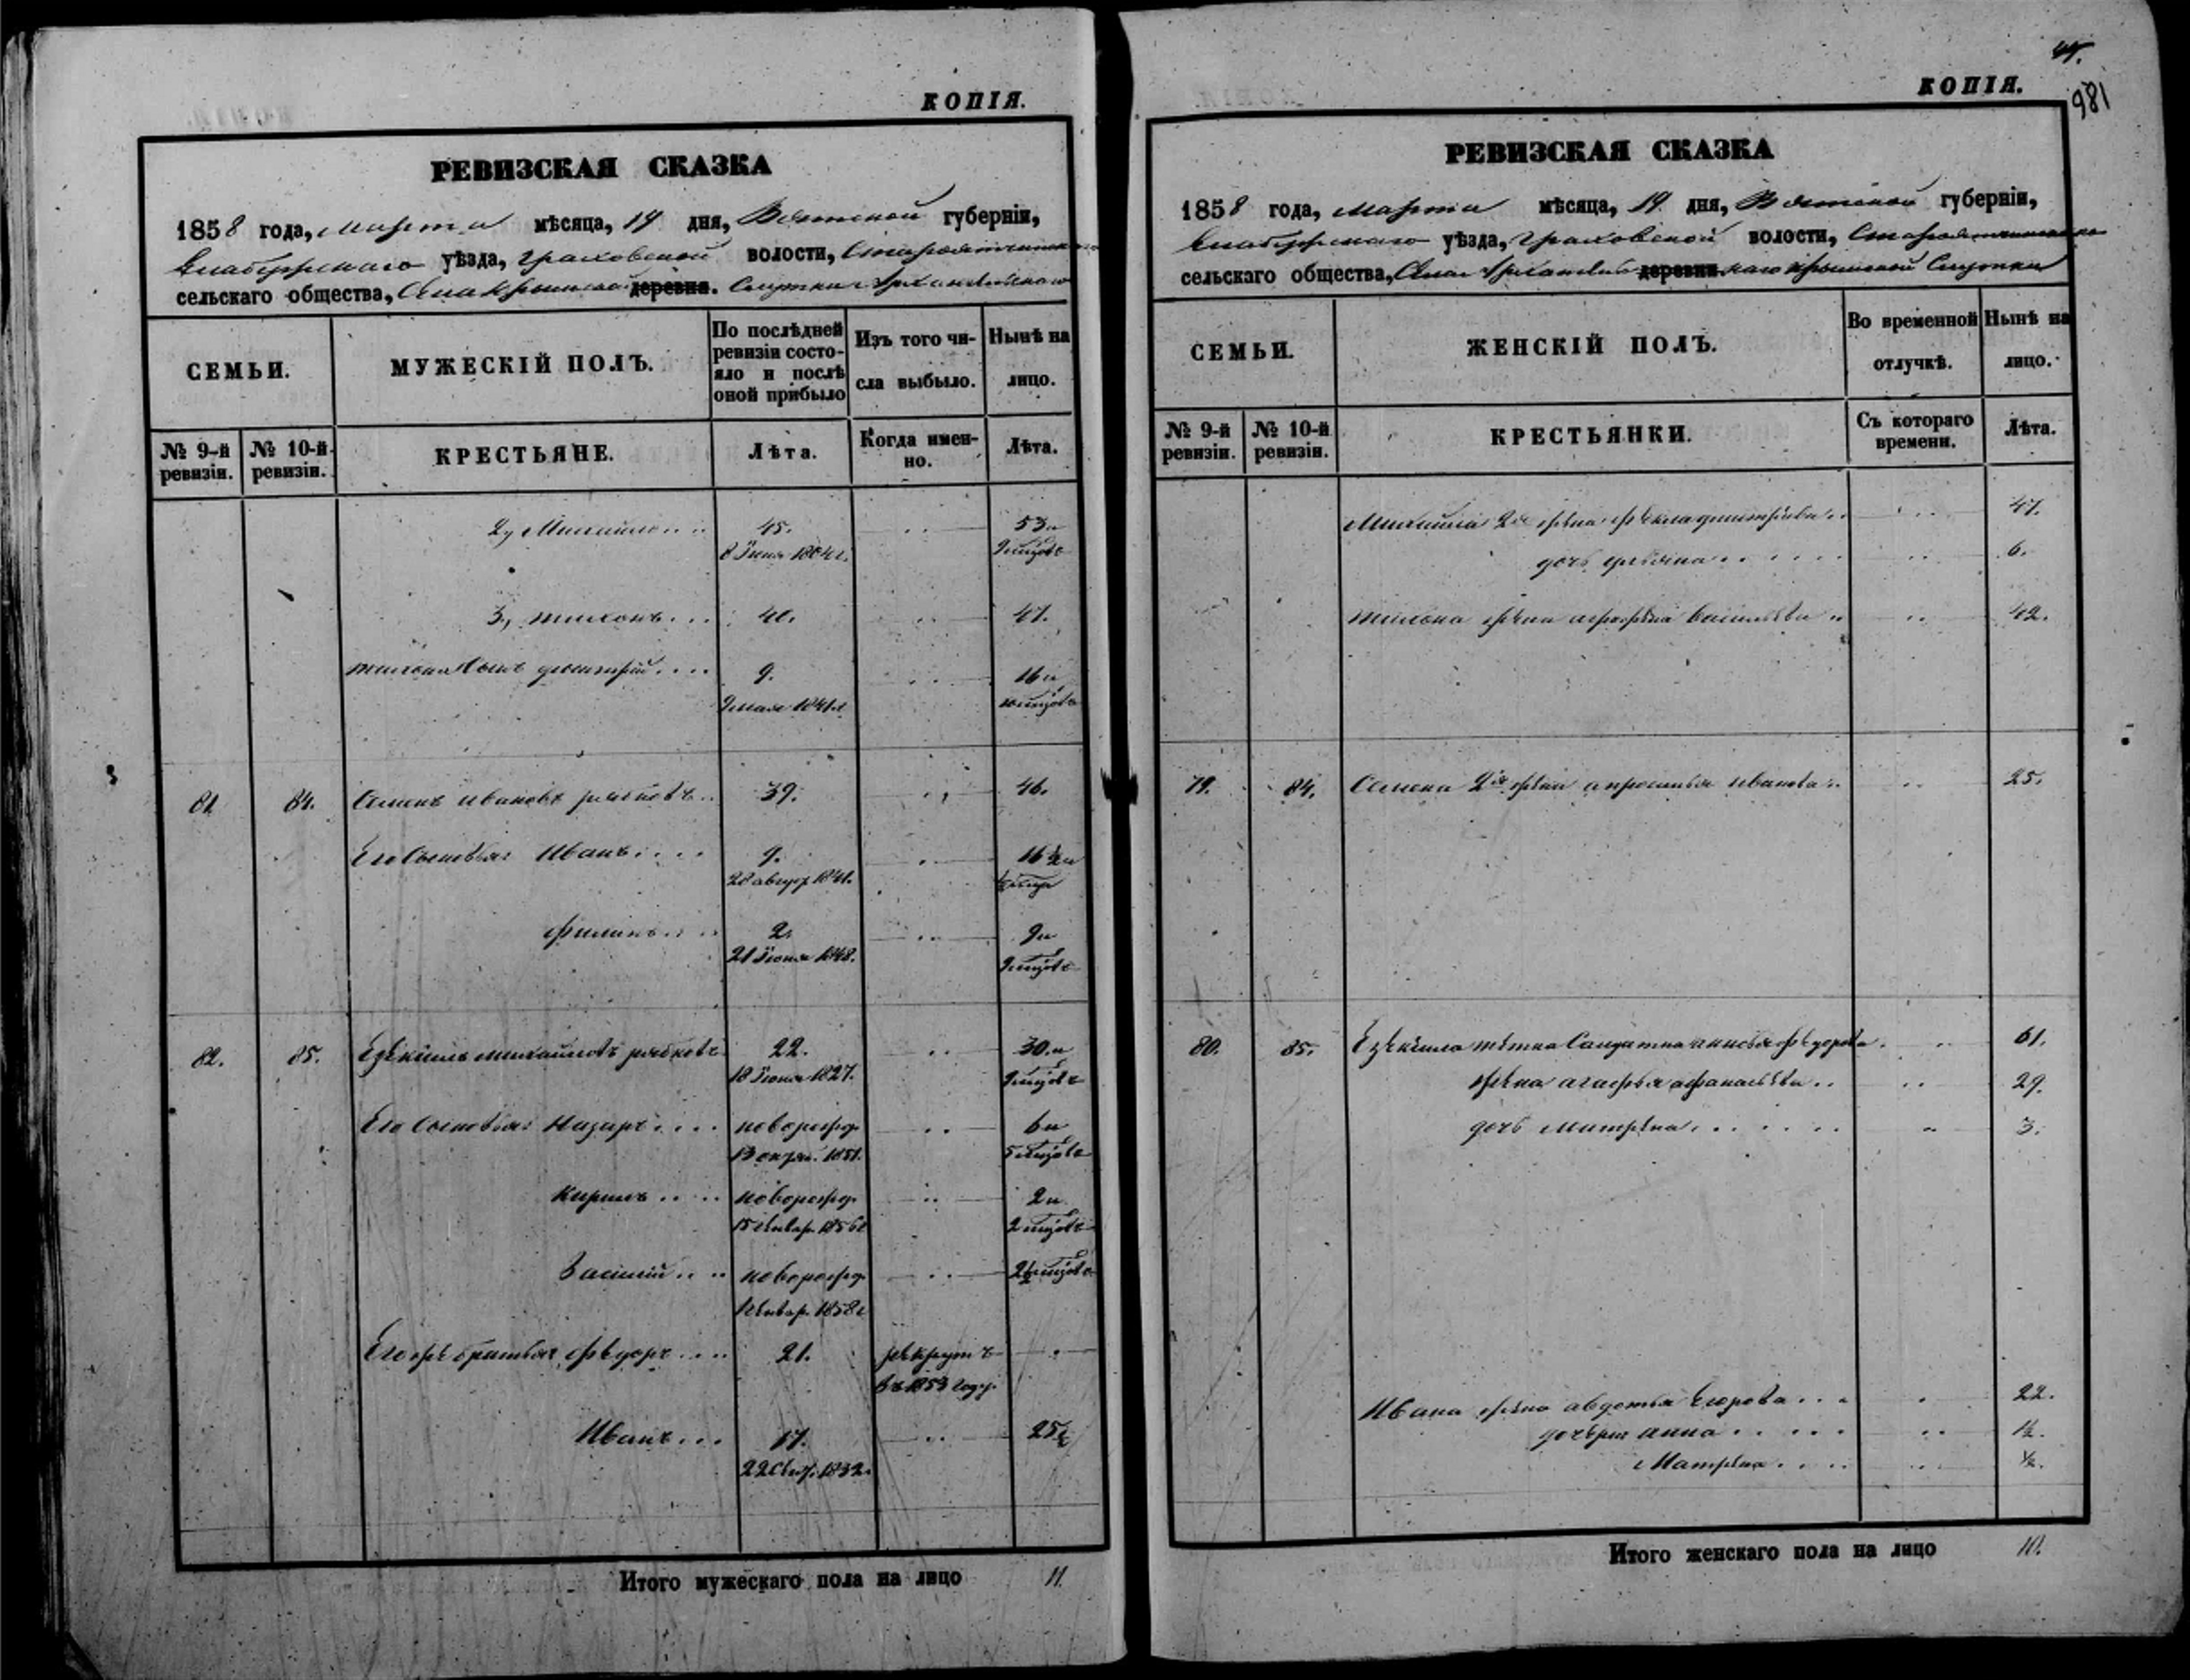 КОПІЯ.
РЕВИЗСКАЯ СКАЗКА
1858 года, Марта мѣсяца, 14 дня, Вятской губерніи,
Елабужскаго уѣзда, Граховской волости,
сельскаго общества, Села деревни.
СЕМЬИ.
МУЖЕСКІЙ ПОЛЪ.
По послѣдней ревизіи состо-
яло и послѣ
оной прибыло
Изъ того чи-
сла выбыло.
Нынѣ на
лицо.
№ 9-й ревизіи.
№ 10-й ревизіи.
КРЕСТЬЯНЕ.
Лѣта.
Когда имен-
но.
Лѣта.
2, Михайло 45. 53 и
3, Тихонъ 40. 47.
Тихона Сынъ Дмитрій 9. 16 и
9 мая 1841
81 84. Семенъ Ивановъ Рябковъ 39. 46.
Его Сыновья Иванъ 9. 16½ и
28 август 1841.
Филипъ 2. 9 и
21 Іюня 1848. 9 мцовъ
82. 85. Езекіиль Михайловъ Рябковъ 22. 30. и
18 Іюня 1827. 9 мцовъ
Его Сыновья Назаръ новорожд. 6 и
13 октяб. 1851. 5 мцовъ
Кирилъ новорожд. 2 и
15 Январ. 1856 2 мцовъ
Василій новорожд. 2½ мцовъ
1 Январ. 1858
Его же братья Федоръ 21. рекрутъ
въ 1853 году.
Иванъ 17. 25½
1832.
Итого мужескаго пола на лицо 11.
981
КОПІЯ.
РЕВИЗСКАЯ СКАЗКА
1858 года, Марта мѣсяца, 14 дня, Вятской губерніи,
Елабужскаго уѣзда, Граховской волости,
сельскаго общества, Села деревни
СЕМЬИ.
ЖЕНСКІЙ ПОЛЪ.
Во временной
отлучкѣ.
Нынѣ на
лицо.
№ 9-й ревизіи.
№ 10-й ревизіи.
КРЕСТЬЯНКИ.
Съ котораго
времени.
Лѣта.
Михайла 2я жена Фекла Дмитріева 47.
дочь 6.
Тихона жена Васильева 42.
79. 84. Семена 2я жена Апросинья Иванова 25.
80. 85. Езекіила тетка Салдатка Федорова 61.
жена Агафья Афанасьева 29.
дочь Матрена 3.
Ивана жена Авдотья Егорова 22.
дочери Анна 1½.
Матрена ½.
Итого женскаго пола на лицо 10.